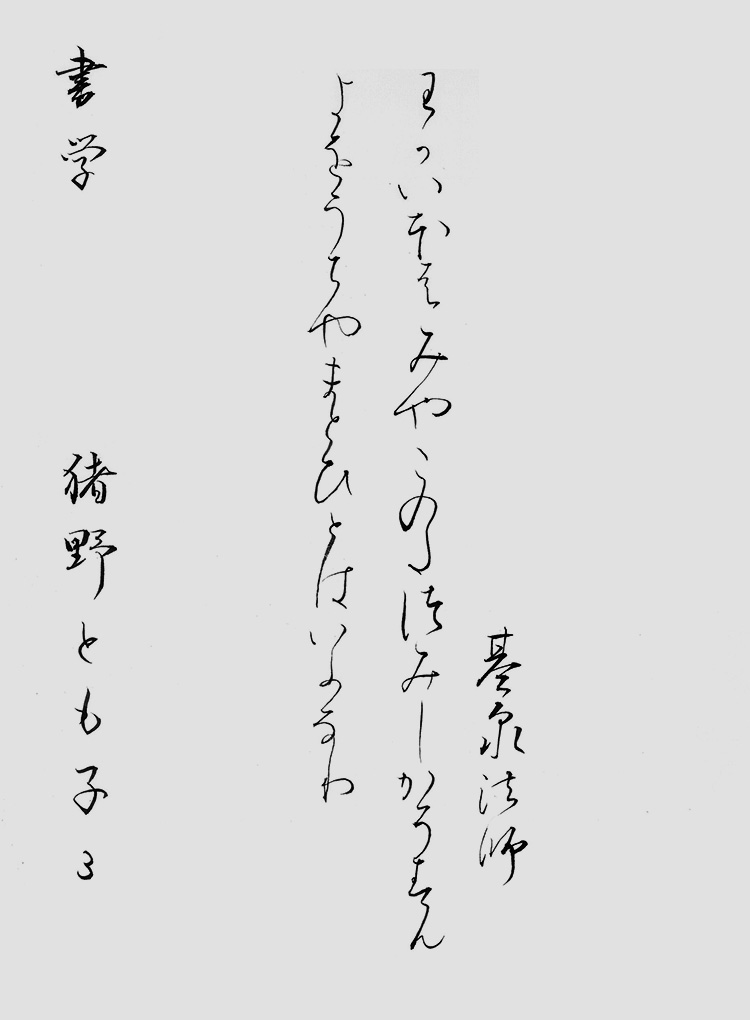 基泉法師
わかいほはみやこのたつみしかそすむ
よをうちやまとひとはいふなり
書学 猪野とも子 3